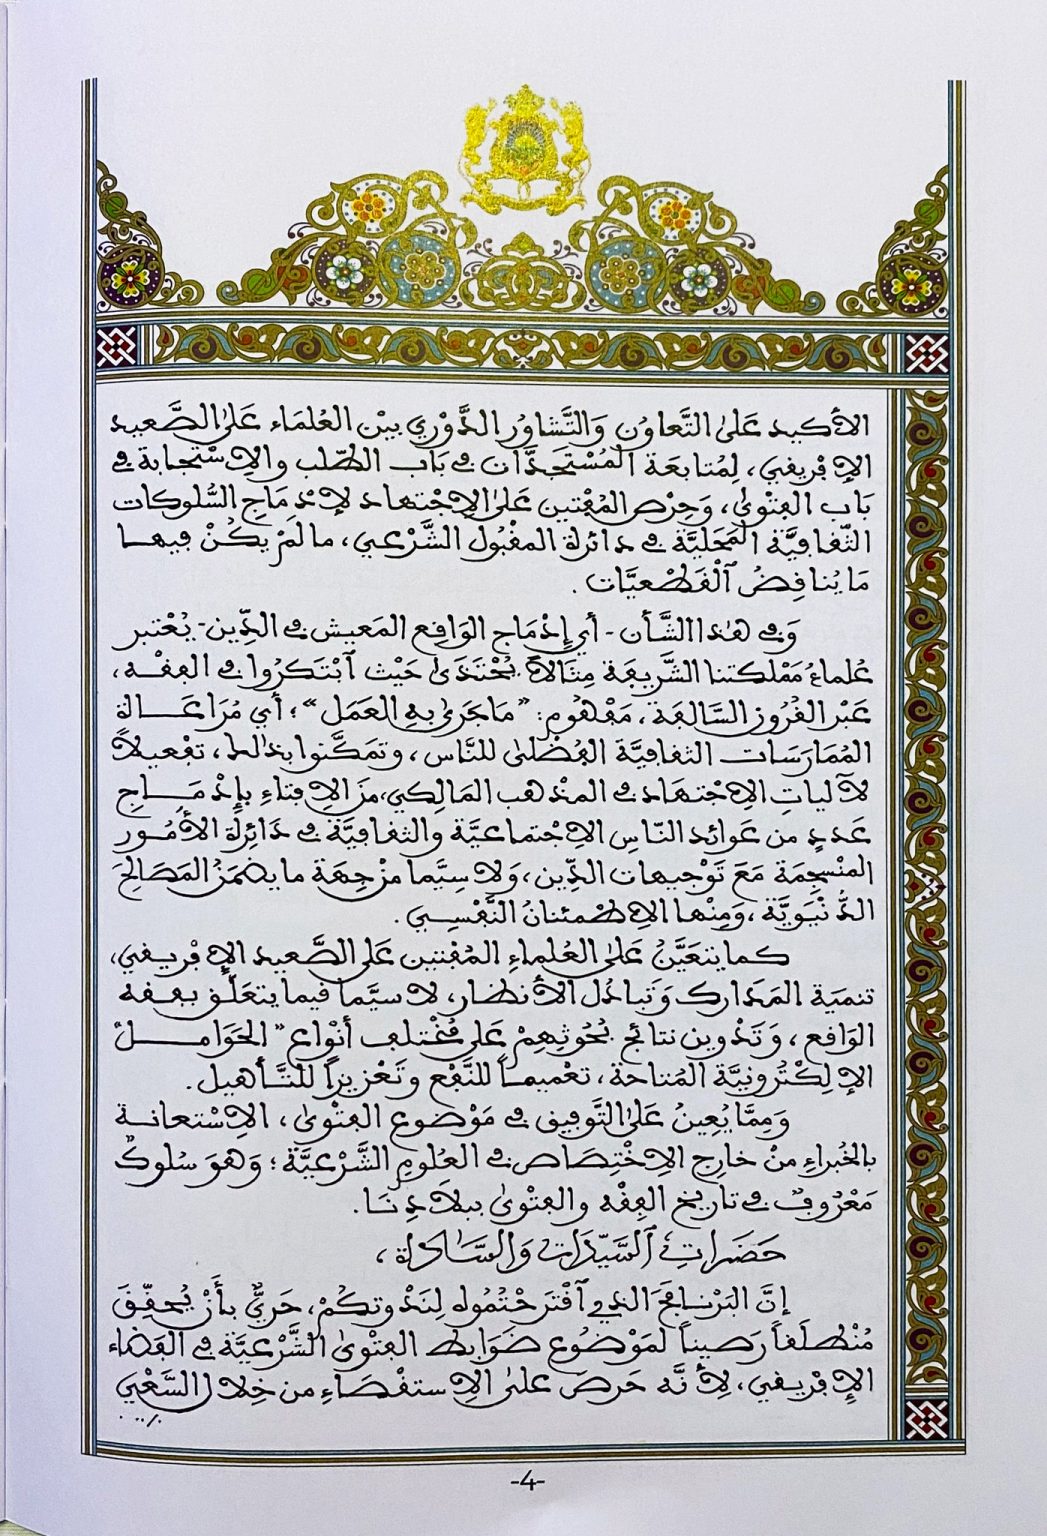 الأكيد عَلَى التَّعاوُنِ وَالتَّشاوُرِ الدَّوْرِي بيْن العُلمَاء عَلَى الصَّعِيد
الإفْريقي، لِمُتابَعَة المُسْتَجَدَّات في بَاب الطَّلب والاِسْتجابة في
بَاب الفتْوَى، وَحِرْص المُفْتين عَلَى الاِجْتهاد لإدْمَاجِ السُّلوكات
الثّقافيَّة المَحَليَّة في دائرة المقْبُول الشَّرْعي، ما لَمْ يَكُنْ فيها
مَا يُناقِضُ ٱلْقَطْعيَّات .
وَفي هَٰذا الشَّأن - أي إدْمَاج الوَاقع المَعيش في الدِّين - يُعْتبر
عُلماءُ مَمْلكتنا الشَّريفَة مِثالاً يُحْتَذَى حَيْث ٱبْتَكَرُوا في الفِقْه،
عَبْر القُرُون السَّالفَة، مَفْهُوم: "مَا جَرَى بِهِ العَمَل"؛ أي مُرَاعَاة
المُمَارَسَات الثقافيَّة الفُضْلَى للنَّاس، وتمَكَّنوا بذٰلك، تفْعيلاً
لآلياتِ الاِجْتهَاد في المذْهب المَالكي، مِنَ الإفتاءِ بِإدْمَاجِ
عَددٍ من عَوائد النّاسِ الاِجْتماعيَّة والثقافيَّة في دَائِرَة الأمُور
المنْسجِمَة مَعَ تَوْجيهات الدِّين، وَلا سيَّما مِنْ جِهَة ما يضْمَنُ المَصَالِحَ
الدُّنْيَويَّة، وَمِنْها الاِطْمئنانُ النَّفْسِي .
كما يتعَيَّنُ عَلَى العُلماءِ المُفْتين عَلَى الصَّعِيد الإفْريقي،
تنميَة المَدَارك وَتبادُل الأنظار، لا سيَّما فيما يتعَلَّق بفقه
الوَاقع، وَتَدْوين نتائج بُحُوثِهِمْ عَلَى مُخْتلف أنْوَاع "الحَوَامـلْ
الإلِكْتُرُونيَّة المُتاحَة، تعْميماً للنَّفْع وتَعْزيزاً للتَّأهيل .
وَمِمَّا يُعِينُ عَلَى التَّوفيق في مَوْضوع الفتْوَى، الاِسْتعانـة
بالخُبراءِ منْ خارِج الاِخْتِصَاص في العُلوم الشَّرْعيَّة؛ وَهُوَ سُلوكٌ
مَعْرُوفٌ في تاريخ الفِقْه والفتْوَى ببلاَدِنَا .
حَضَرات ٱلسَّيّدَات وَالسَّادة،
إنَّ البَرْنامَجَ الذي ٱقْتَرَحْتُمُوه لِنَدْوتكُمْ، حَريٌّ بأَنْ يُحقِّقَ
مُنْطلَقاً رَصيناً لمَوْضُوع ضَوَابط الفتْوَى الشَّرْعيَّة في الفضَاء
الإفْريقي، لأنَّه حَرصَ على الاِستقْصَاءِ من خِلال السَّعْي
./..
-4-